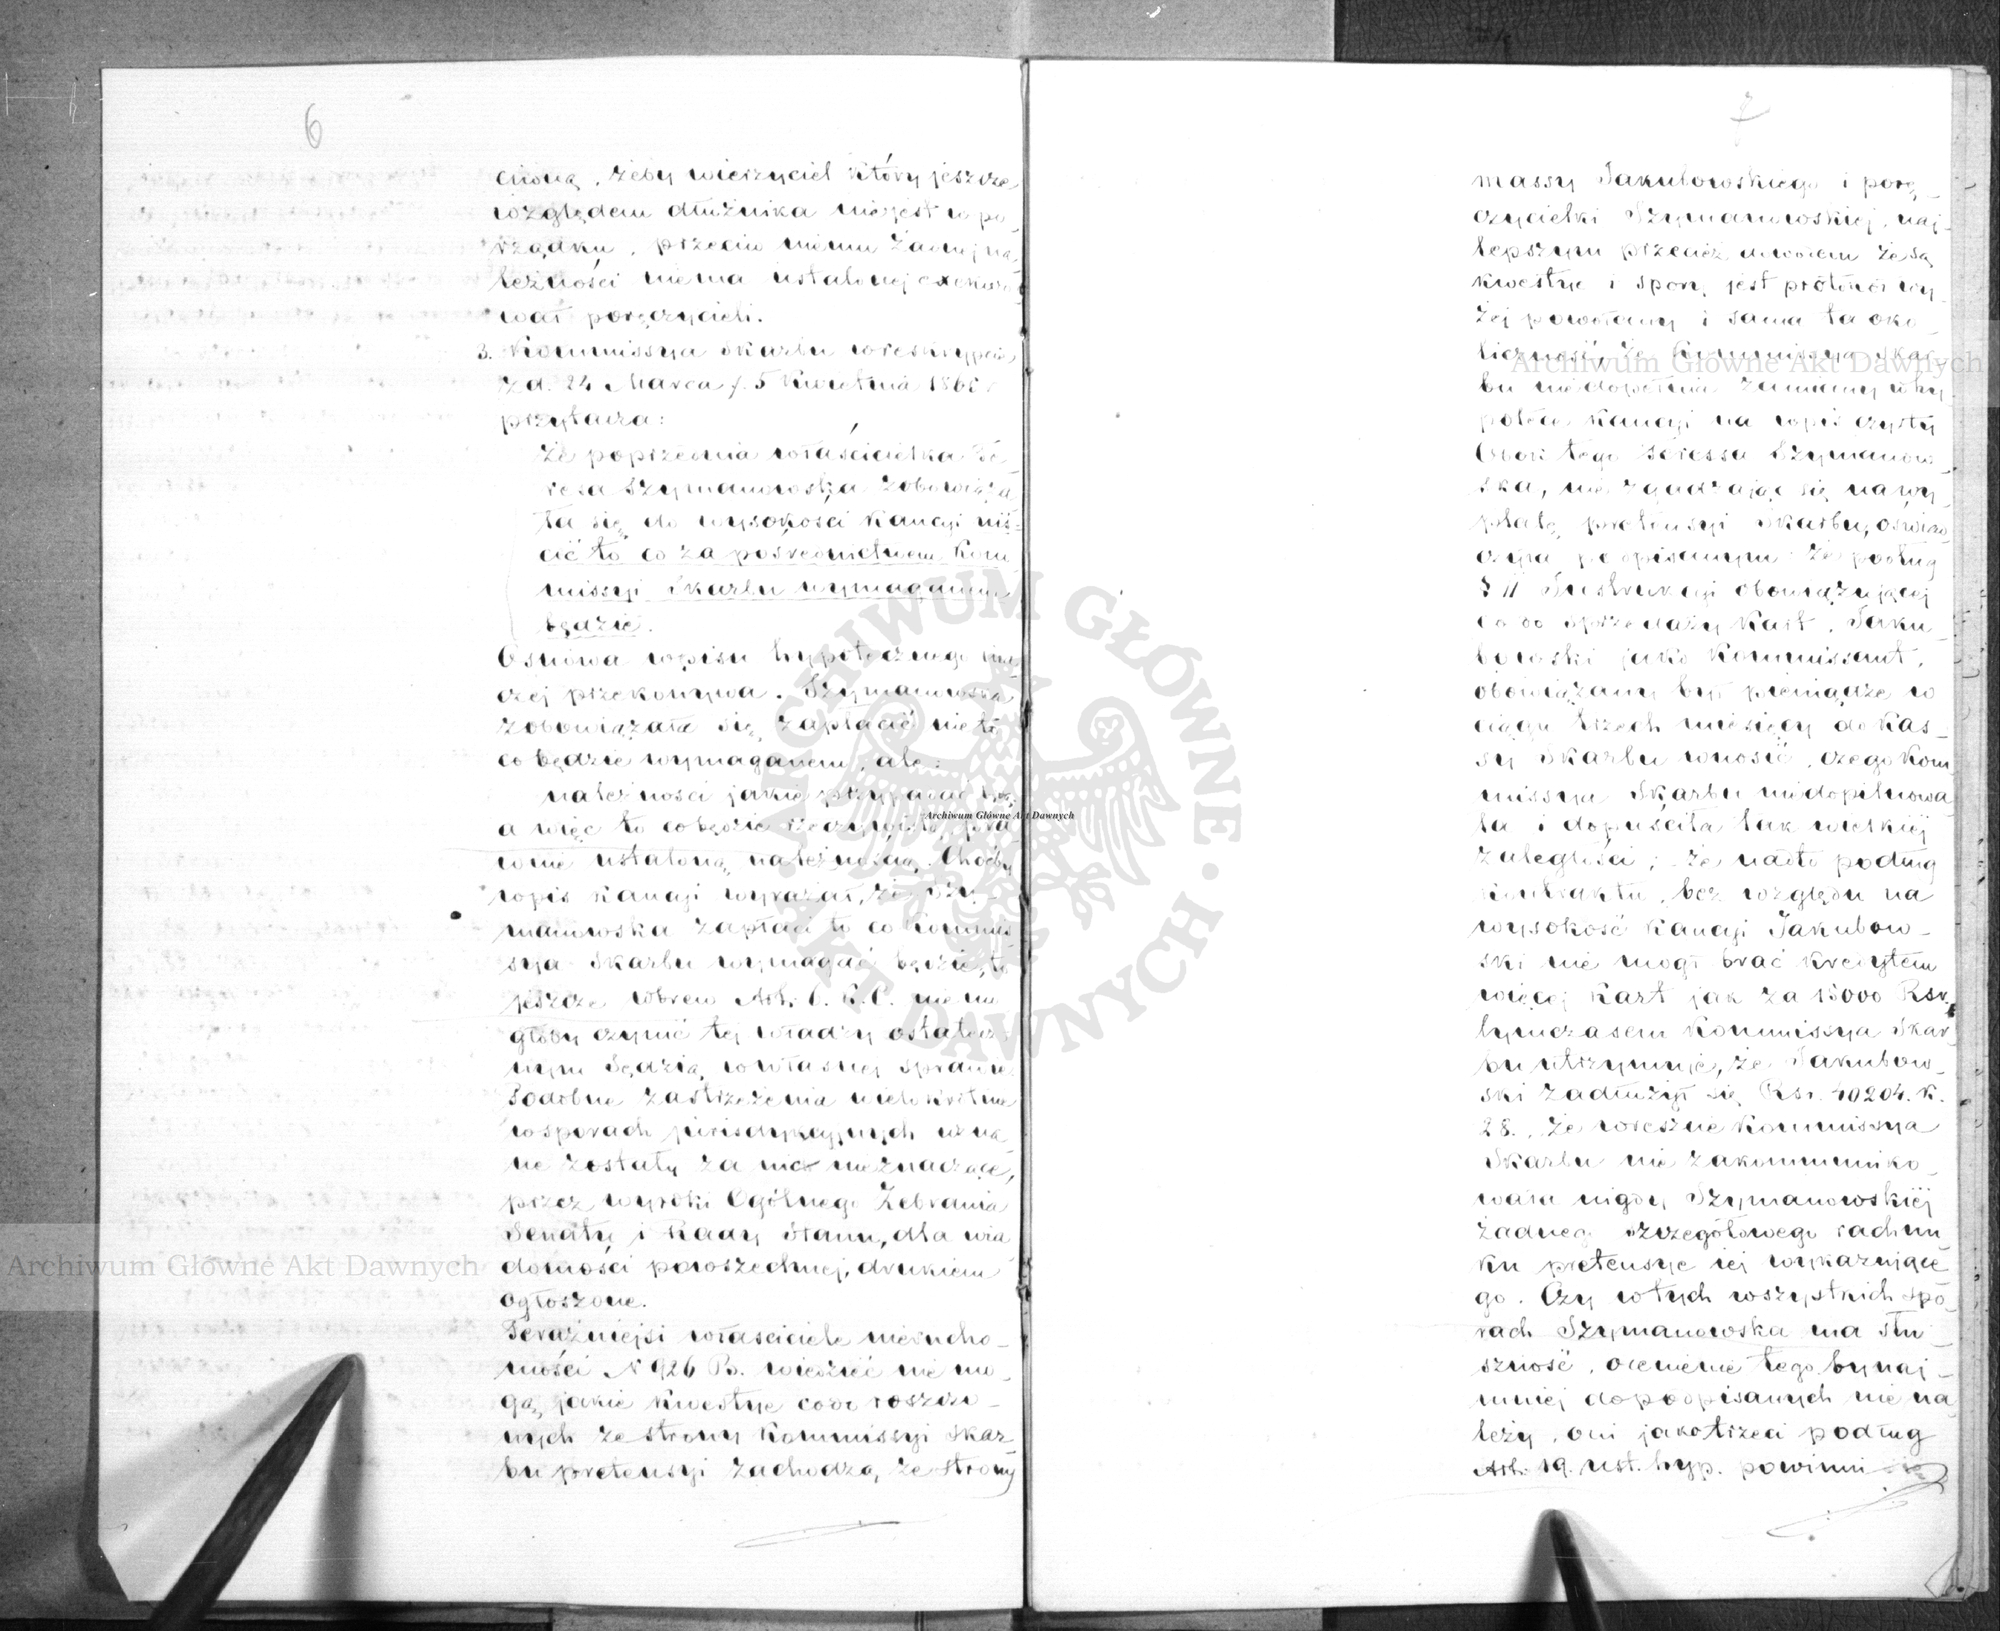 6
ciwną, żeby wierzyciel który jeszcze
względem dłużnika nie jest w po
rządku, przeciw niemu żadnej na
leżności niema ustalonej exekwo
wał poręczycieli.
3. Kommissya Skarbu w reskrypcie
z d. 24 Marca / 5 Kwietnia 186
przytacza:
że poprzednia właścicielka Te
resa Szymanowska zobowiąza
ła się do wysokości kaucyi uiś
cić to co za pośrednictwem Kom
missyi Skarbu wymaganem
będzie.
Osnowa wpisu hypotecznego ina
czej przekonywa. Szymanowska
zobowiązała się zapłacić nie to
co będzie wymaganem, ale:
należności jakie przypadać
a więc to co będzie rzeczywistą, pra
wnie ustaloną należnością. Choćby
wpis kaucyi wyrażał, że Szy
manowska zapłaci to co Kommis
sya Skarbu wymagać będzie, to
jeszcze wbrew Art. 6. K.C. nie mo
głoby czynić tej władzy ostatecz
nym Sędzią w własnej sprawie.
Podobne zastrzeżenia wielokrotnie
w sporach jurisdykcyjnych uzna
ne zostały za nic nieznaczące,
przez wyroki Ogólnego Zebrania
Senatu i Rady Stanu, dla wia
domości powszechnej, drukiem
ogłoszone.
Teraźniejsi właściciele nierucho-
mości N 926 B. wiedzieć nie mo-
gą, jakie kwestye co do roszczo-
nych ze strony Kommissyi Skar
bu pretensyi zachodzą, ze strony
7
massy Jakubowskiego i porę-
czycielki Szymanowskiej, naj-
lepszym przecież dowodem że są
kwestye i spory jest protokół wy
żej powołany i sama ta oko-
liczność, że Kommissya Skar-
bu nie dopełnia zamiany w hy
potece kaucyi na wpis czysty
Obok tego Teressa Szymanow
ska, nie zgadzając się na wy
płatę pretensyi Skarbu, oświad
czyła podpisanym że podług
§ 11 Instrukcyi obowiązującej
co do sprzedaży kart, Jaku-
bowski jako Kommissant,
obowiązany był pieniądze w
ciągu trzech miesięcy do Kas-
sy Skarbu wnosić, czego Kom
missya Skarbu niedopilnowa
ła i dopuściła tak wielkiej
zaległości; że nadto podług
kontraktu, bez względu na
wysokość kaucyi Jakubow-
ski nie mógł brać kredytem
więcej kart jak za 15000 Rsr.
tymczasem Kommissya Skar
bu utrzymuje, że Jakubow-
ski zadłużył się Rsr. 40204. k.
28., że wreszcie Kommissya
Skarbu nie zakommuniko-
wała nigdy Szymanowskiej
żadnego szczegółowego rachun
ku pretensye jej wykazujące
go. Czy w tych wszystkich spo
rach Szymanowska ma słu-
szność, ocenienie tego bynaj-
mniej do podpisanych nie na
leży, oni jako trzeci podług
Art. 19. ust. hyp. powinni
Archiwum Główne Akt Dawnych
Archiwum Główne Akt Dawnych
Archiwum Główne Akt Dawnych
ARCHIWUM GŁÓWNE · AKT DAWNYCH ·